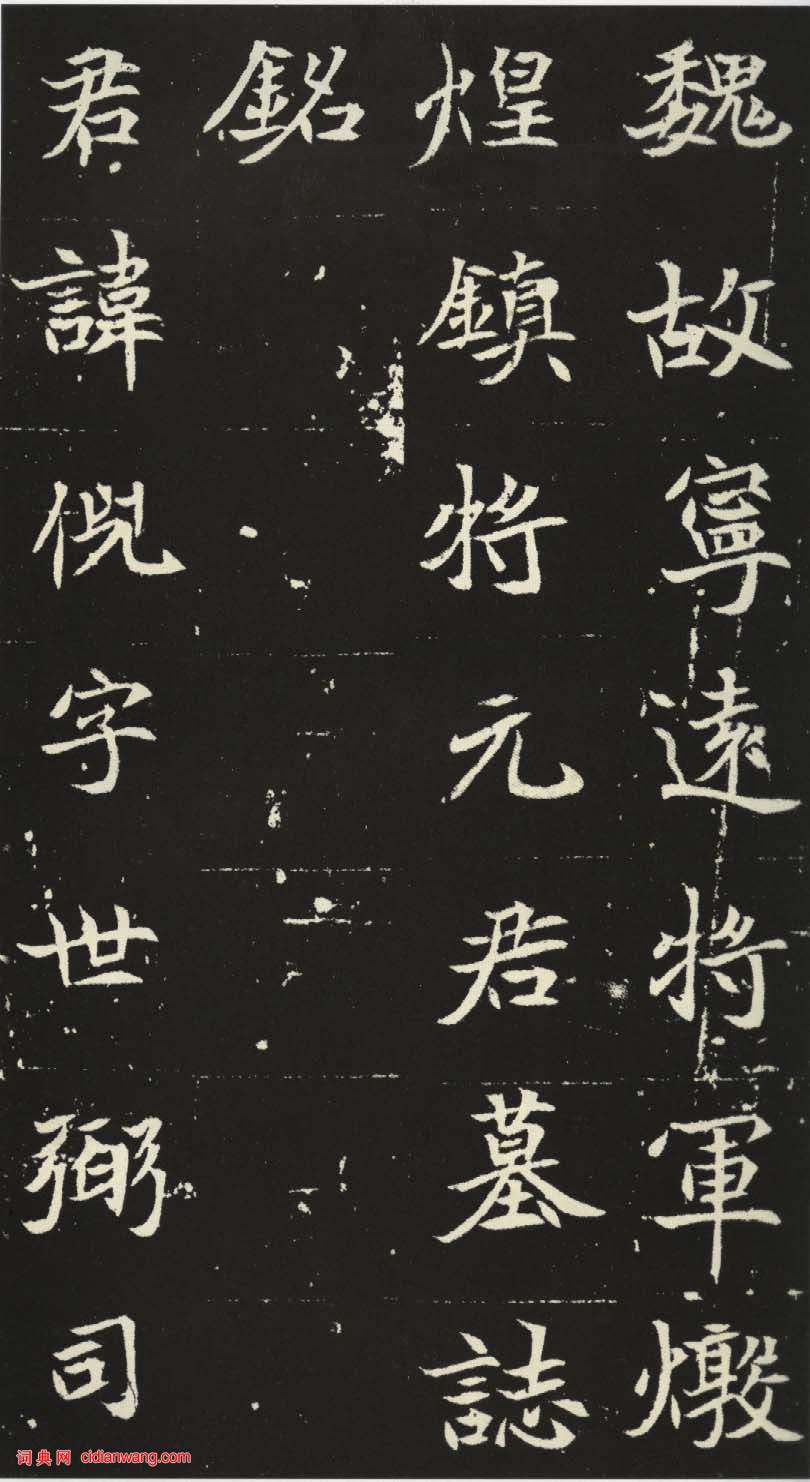 魏故寧遠將軍燉
煌鎮將元君墓誌
銘
君諱倪字世弼司
词典网 cidianwang.com